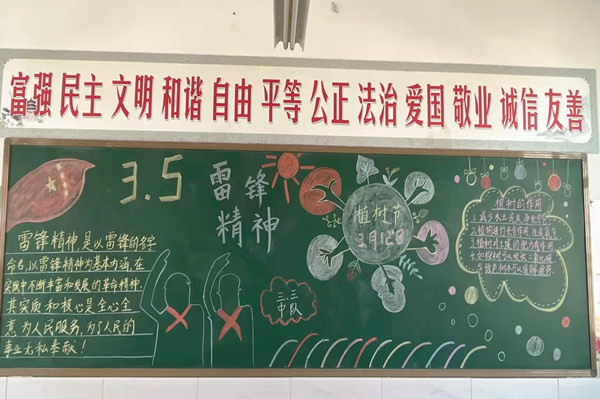 富强 民主 文明 和谐 自由 平等 公正 法治 爱国 敬业 诚信 友善
3.5
雷锋
精神
雷锋精神是以雷锋的名字
命名,以雷锋精神为基本内涵,在
实践中不断丰富和发展的革命精神,
其实质和核心是全心全
意为人民服务,为了人民的
事业无私奉献!
三.三
中队
植树节
3月12日
植树的作用
1.减少水土流失
2.植树
3.植树
4.
5.